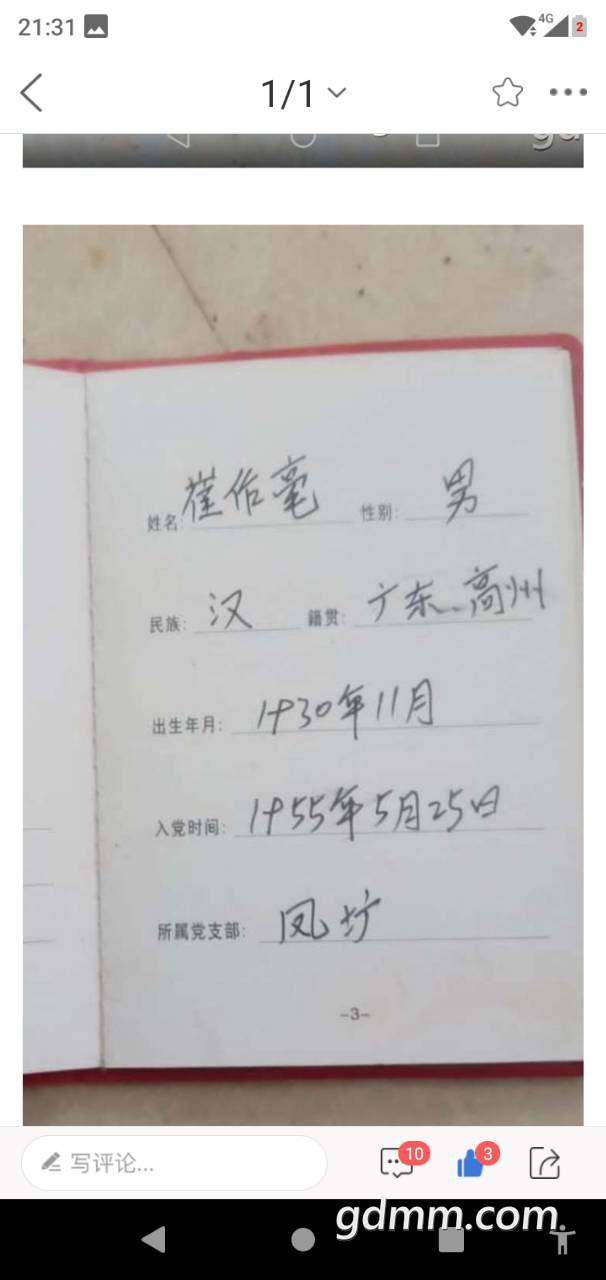 21:31
4G
2
1/1
姓名: 崔佑亳 性别: 男
民族: 汉 籍贯: 广东、高州
出生年月: 1930年11月
入党时间: 1955年5月25日
所属党支部: 凤坊
-3-
写评论...
10
3
gdmm.com